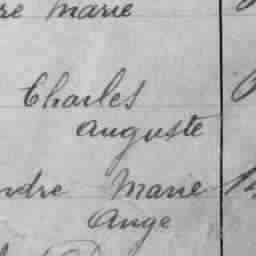 re Marie
Charles
Auguste
ndre Marie
Ange